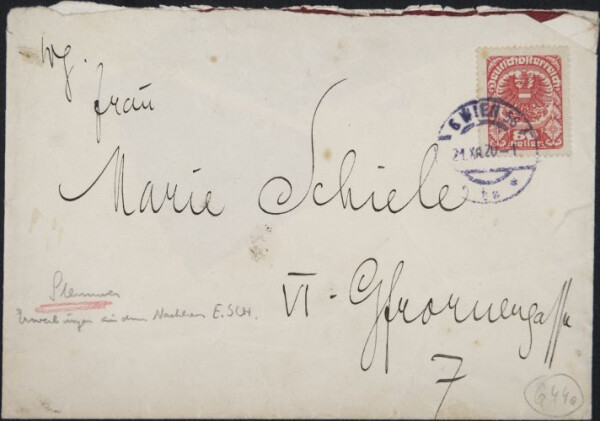 Wg.
Frau
Marie Schiele
VI - Gfrornergasse
7
Deutschösterreich
80
Heller
6 WIEN 56
21.XII.20
Erwerbungen aus dem Nachlass E. SCH.
G 44a